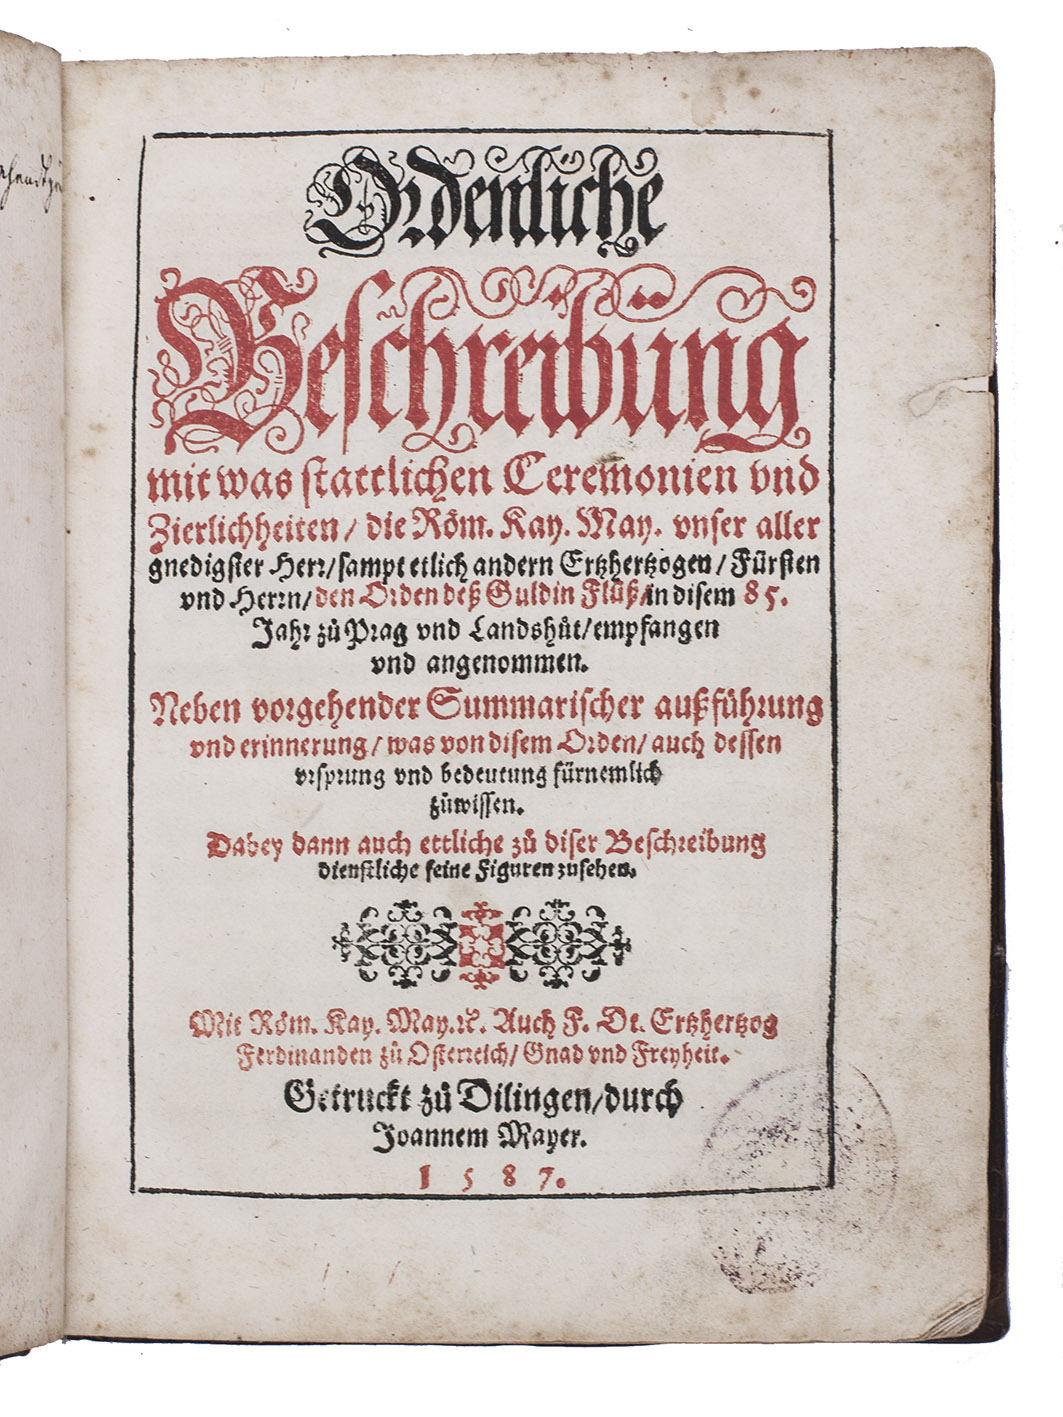 Ordenliche
Beschreibung
mit was stattlichen Ceremonien vnd
Zierlichheiten / die Röm. Kay. May. vnser aller
gnedigster Herr / sampt etlich andern Ertzhertzogen / Fürsten
vnd Herrn / den Orden deß Guldin Flüß / in disem 85.
Jahr zů Prag vnd Landshůt / empfangen
vnd angenommen.
Neben vorgehender Summarischer außführung
vnd erinnerung / was von disem Orden / auch dessen
vrsprung vnd bedeutung fürnemlich
zůwissen.
Dabey dann auch ettliche zů diser Beschreibung
dienstliche feine Figuren zusehen.
Mit Röm. Kay. May. ꝛc. Auch F. Dt. Ertzhertzog
Ferdinanden zů Osterreich / Gnad vnd Freyheit.
Getruckt zů Dilingen / durch
Joannem Mayer.
1587.